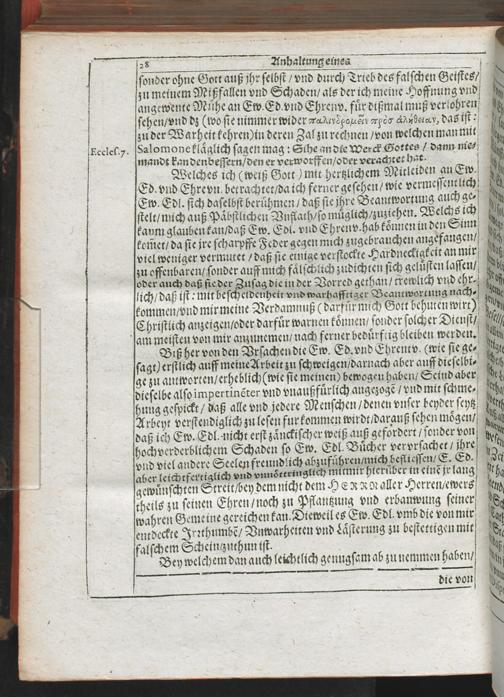 28 Anhaltung eines
sonder ohne Gott auß jhr selbst / vnd durch Trieb des falschen Geistes/
zu meinem Mißfallen vnd Schaden/ als der ich meine Hoffnung vnd
angewente Mühe an Ew. Ed. vnd Ehrenv. für dißmal muß verlohren
sehen/vnd dz (wo sie nimmer wider παλινδρομεῖν πρὸς ἀλήθειαν, das ist:
zu der Warheit kehren) in deren Zal zu rechnen / von welchen man mit
Eccles. 7.
Salomone kläglich sagen mag: Sihe an die Werck Gottes / dann nie-
mandt kan den bessern/den er verworffen/oder verachtet hat.
Welches ich (weiß Gott) mit hertzlichem Mitleiden an Ew.
Ed. vnd Ehrvn. betrachtet/da ich ferner gesehen/ wie vermessentlich
Ew. Edl. sich daselbst berühmen/ daß sie jhre Beantwortung auch ge-
stelt/mich auß Päbstlichen Vnflath/so müglich/zuziehen. Welchs ich
kaum glauben kan/daß Ew. Edl. vnd Ehrenw. hab können in den Sinn
kom̃et/ da sie jre scharpffe Feder gegen mich zugebrauchen angefangen/
viel weniger vermutet / daß sie einige verstockte Hardneckigkeit an mir
zu offenbaren/ sonder auff mich fälschlich zudichten sich gelüsten lassen/
oder auch daß sie der Zusag die in der Vorred gethan / trewlich vnd ehr-
lich/ daß ist: mit bescheidenheit vnd warhafftiger Beantwortung nach-
kommen/vnd mir meine Verdamnuß (darfür mich Gott behüten wirt)
Christlich anzeigen/oder darfür warnen können/ sonder solcher Dienst/
am meisten von mir anzunemen/ nach ferner bedürfftig bleiben werden.
Biß her von den Vrsachen die Ew. Ed. vnd Ehrenv. (wie sie ge-
sagt) erstlich auff meine Arbeit zu schweigen/darnach aber auff dieselbi-
ge zu antworten/erheblich (wie sie meinen) bewogen haben/ Seind aber
dieselbe also impertinēter vnd vnaußfürlich angezogē / vnd mit schme-
hung gespickt / daß alle vnd jedere Menschen / denen vnser beyder seytz
Arbeyt verstendiglich zu lesen fürkommen wirdt/darauß sehen mögen/
daß ich Ew. Edl. nicht erst zänckischer weiß auß gefordert / sonder von
hochverderblichem Schaden so Ew. Edl. Bücher vervrsachet / jhre
vnd viel andere Seelen freundlich abzuführen/mich beflissen/ E. Ed.
aber leichtfertiglich vnd vnnötturfftiglich mit mir hierüber in einē jr lang
gewünschten Streit/bey dem nicht dem HERRN aller Herren/ewers
theils zu seinen Ehren / noch zu Pflantzung vnd erbawung seiner
wahren Gemeine gereichen kan. Dieweil es Ew. Edl. vmb die von mir
entdeckte Irrthumbē/ Vnwarheiten vnd Lästerung zu bestettigen mit
falschem Schein zuthun ist.
Bey welchem dan auch leichtlich genugsam ab zu nemmen haben/
die von